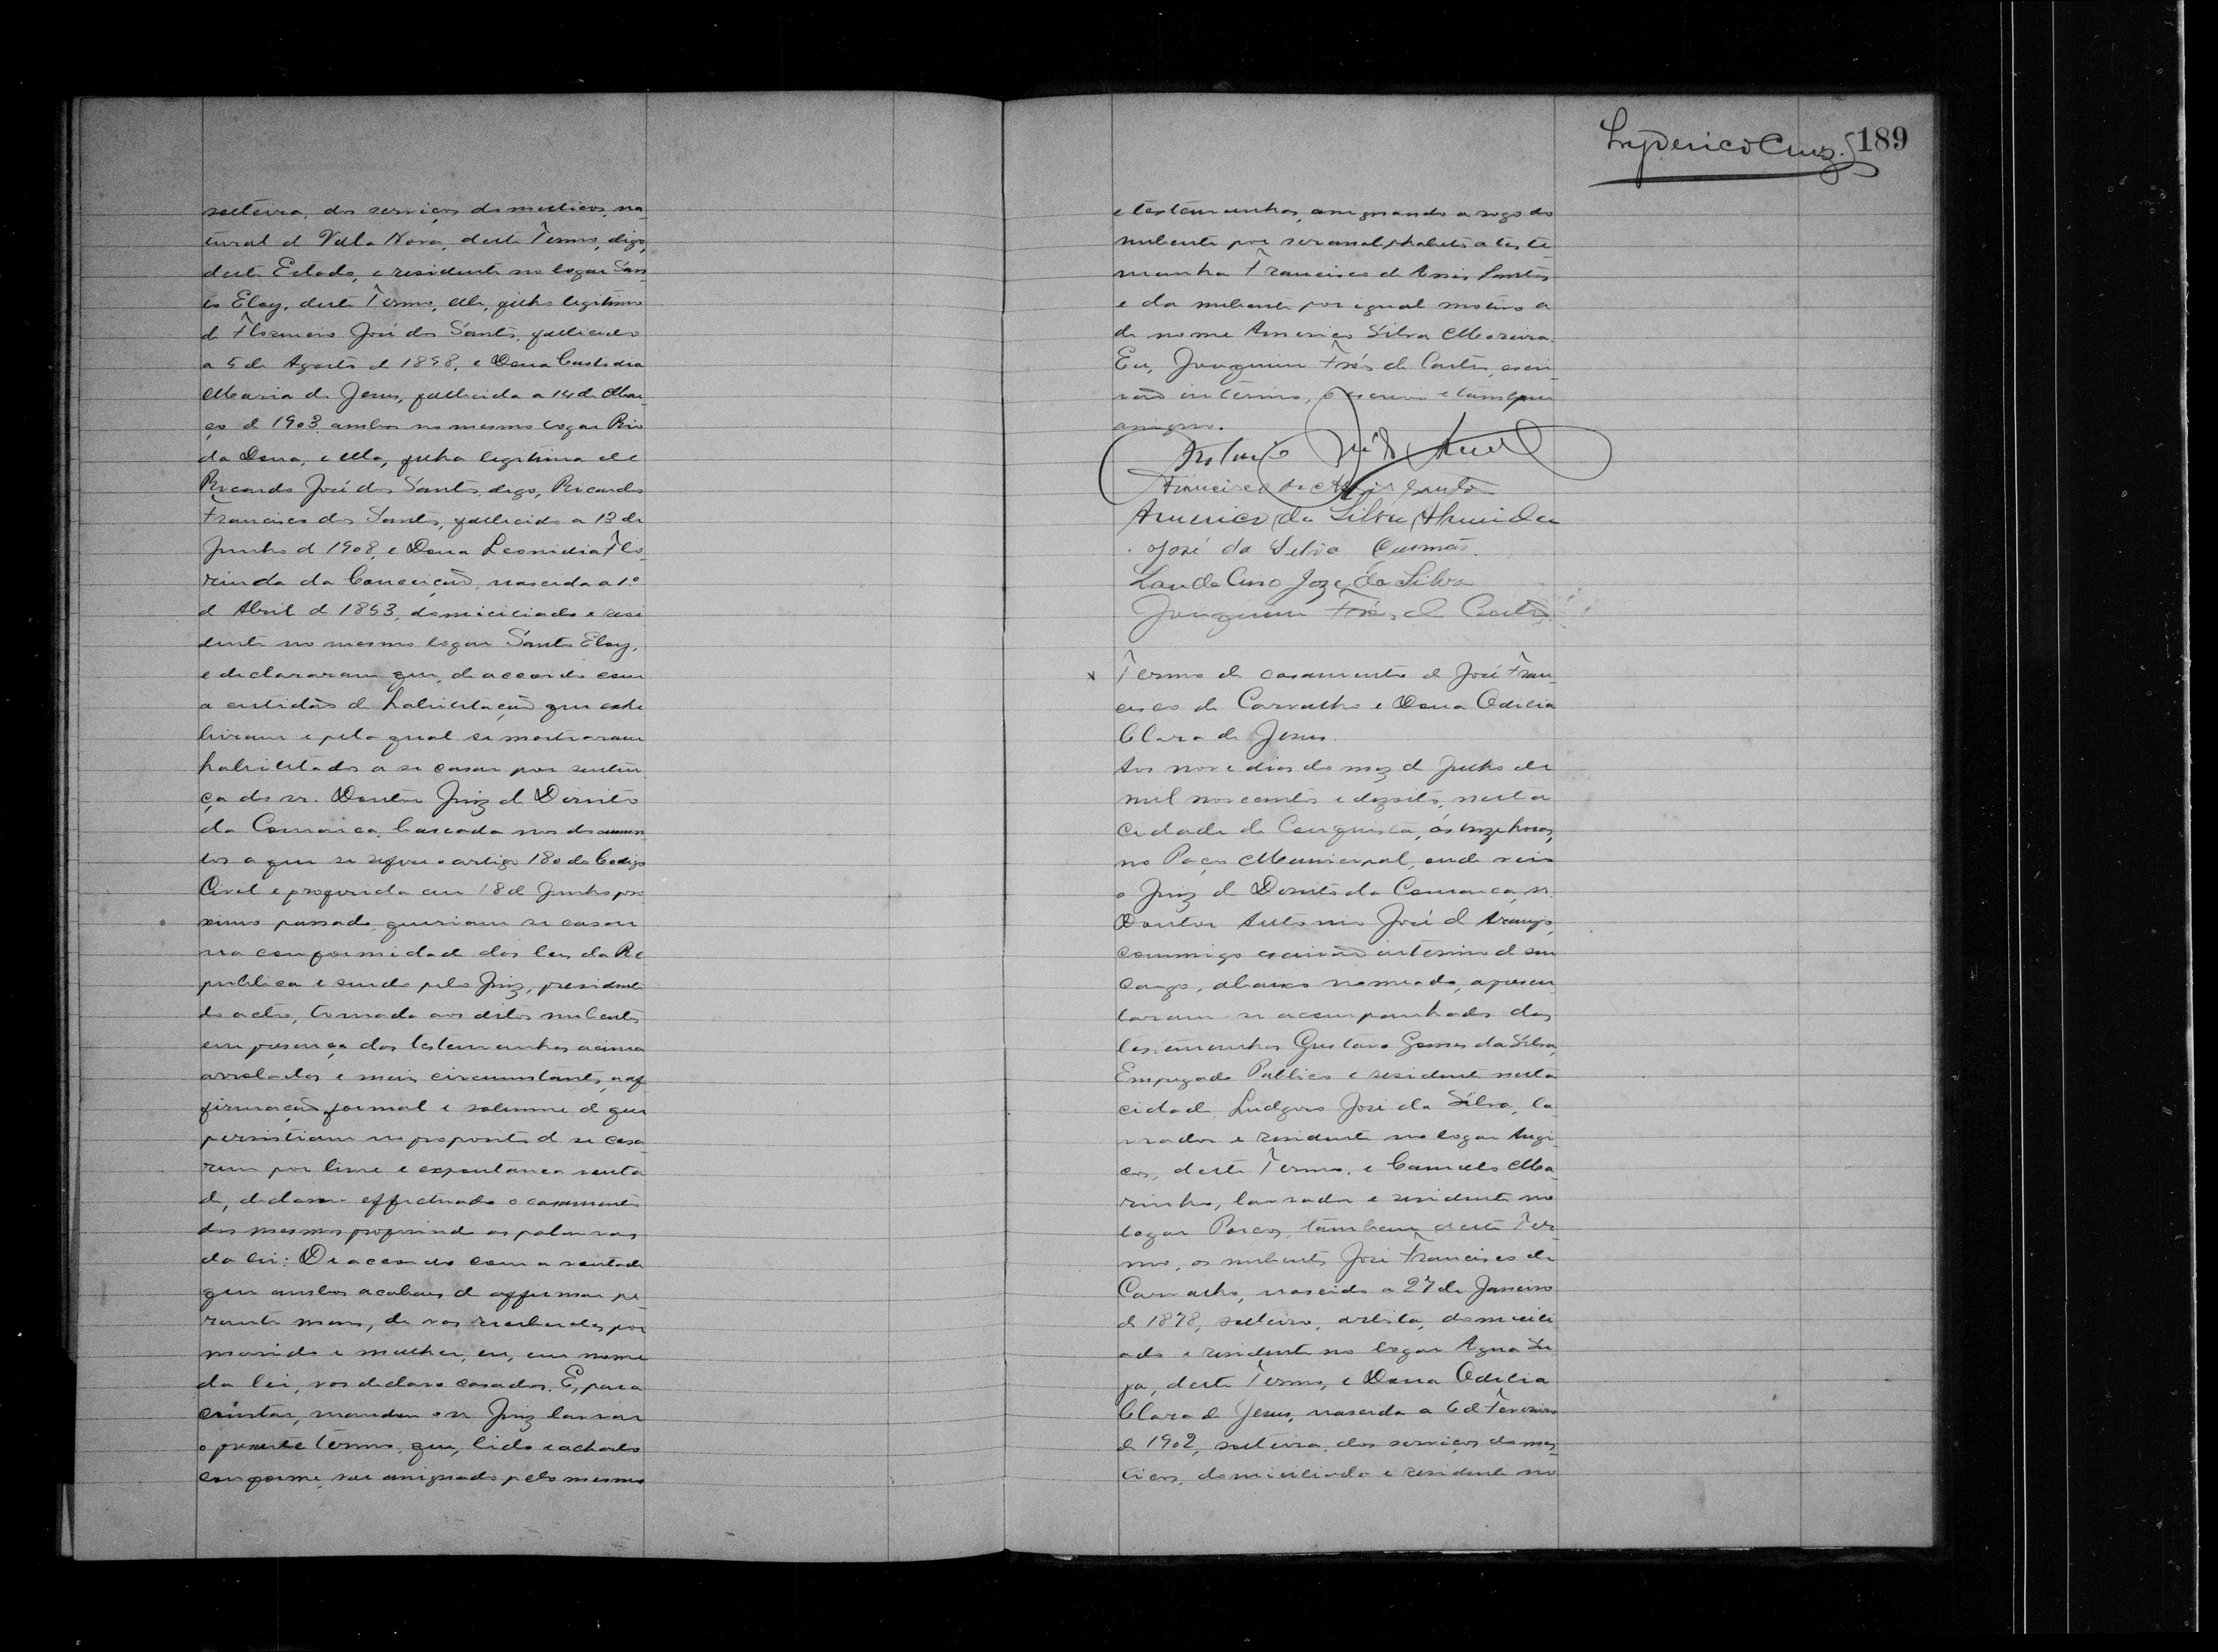 solteira, dos serviços domesticos, na-
tural de Villa Nova, deste Termo, digo,
deste Estado, e residente no logar San-
to Eloy, deste Termo, elle, filho legitimo
de Florencio José dos Santos, fallecido
a 5 de Agosto de 1898, e Dona Custodia
Maria de Jesus, fallecida a 14 de Mar-
ço de 1903, ambos no mesmo logar Rio
da Dona, e ella, filha legitima de
Ricardo José dos Santos, digo, Ricardo
Francisco dos Santos, fallecido a 13 de
Junho de 1908, e Dona Leonidia Flo-
rinda da Conceição, nascida a 1º
de Abril de 1853, domiciliada e resi-
dente no mesmo logar Santo Eloy,
e declararam que, de accordo com
a certidão de habilitação que exhi-
biram e pela qual se mostraram
habilitados a se casar por senten-
ça do sr. Doutor Juiz de Direito
da Comarca, baseada nos documen-
tos a que se refere o artigo 180 do Codigo
Civil e proferida em 18 de Junho pro-
ximo passado, queriam se casar
na conformidade das leis da Re-
publica e sendo pelo Juiz, presidente
do acto, tomada aos ditos nubentes
em presença das testemunhas acima
arroladas e mais circumstantes, a af-
firmação formal e solemne de que
persistiam no proposito de se casa-
rem por livre e expontanea vonta-
de, declarou effectuado o casamento
dos mesmos proferindo as palavras
da lei: De accordo com a vontade
que ambos acabaes de affirmar pe-
rante mim, de vos receberdes por
marido e mulher, eu, em nome
da lei, vos declaro casados. E, para
constar, mandou o sr. Juiz lavrar
o presente termo, que, lido e achado
conforme, vae assignado pelo mesmo
Lyderico Cruz. 189
e testemunhas, assignando a rogo do
nubente por ser analphabeto a teste-
munha Francisco de Assis Santos
e da nubente por igual motivo a
de nome Americo Silva Moreira.
Eu, Joaquim Fróes de Castro, escri-
vão interino, o escrevi e tambem
assigno.
Francisco de Assis Santos
Americo da Silva Almeida
José da Silva Gusmão.
Laudelino Joze da Silva
Joaquim Fróes de Castro
x Termo de casamento de José Fran-
cisco de Carvalho e Dona Odilia
Clara de Jesus.
Aos nove dias do mez de Julho de
mil novecentos e dezoito, nesta
cidade de Conquista, ás onze horas,
no Paço Municipal, onde veio
o Juiz de Direito da Comarca, sr.
Doutor Antonio José de Araujo,
commigo escrivão interino de seu
cargo, abaixo nomeado, apresen-
taram-se acompanhados das
testemunhas Gustavo Gomes da Silva,
Empregado Publico e residente nesta
cidade, Ludgero José da Silva, la-
vrador e residente no logar Angi-
cos, deste Termo, e Camillo Ma-
rinho, lavrador e residente no
logar Porcos, tambem deste Ter-
mo, os nubentes José Francisco de
Carvalho, nascido a 27 de Janeiro
de 1878, solteiro, artista, domicili-
ado e residente no logar Agua Su-
ja, deste Termo, e Dona Odilia
Clara de Jesus, nascida a 6 de Fevereiro
de 1902, solteira, dos serviços domes-
ticos, domiciliada e residente no